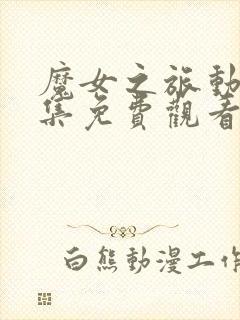 魔女之旅動
集免費觀看
白熊動漫工作